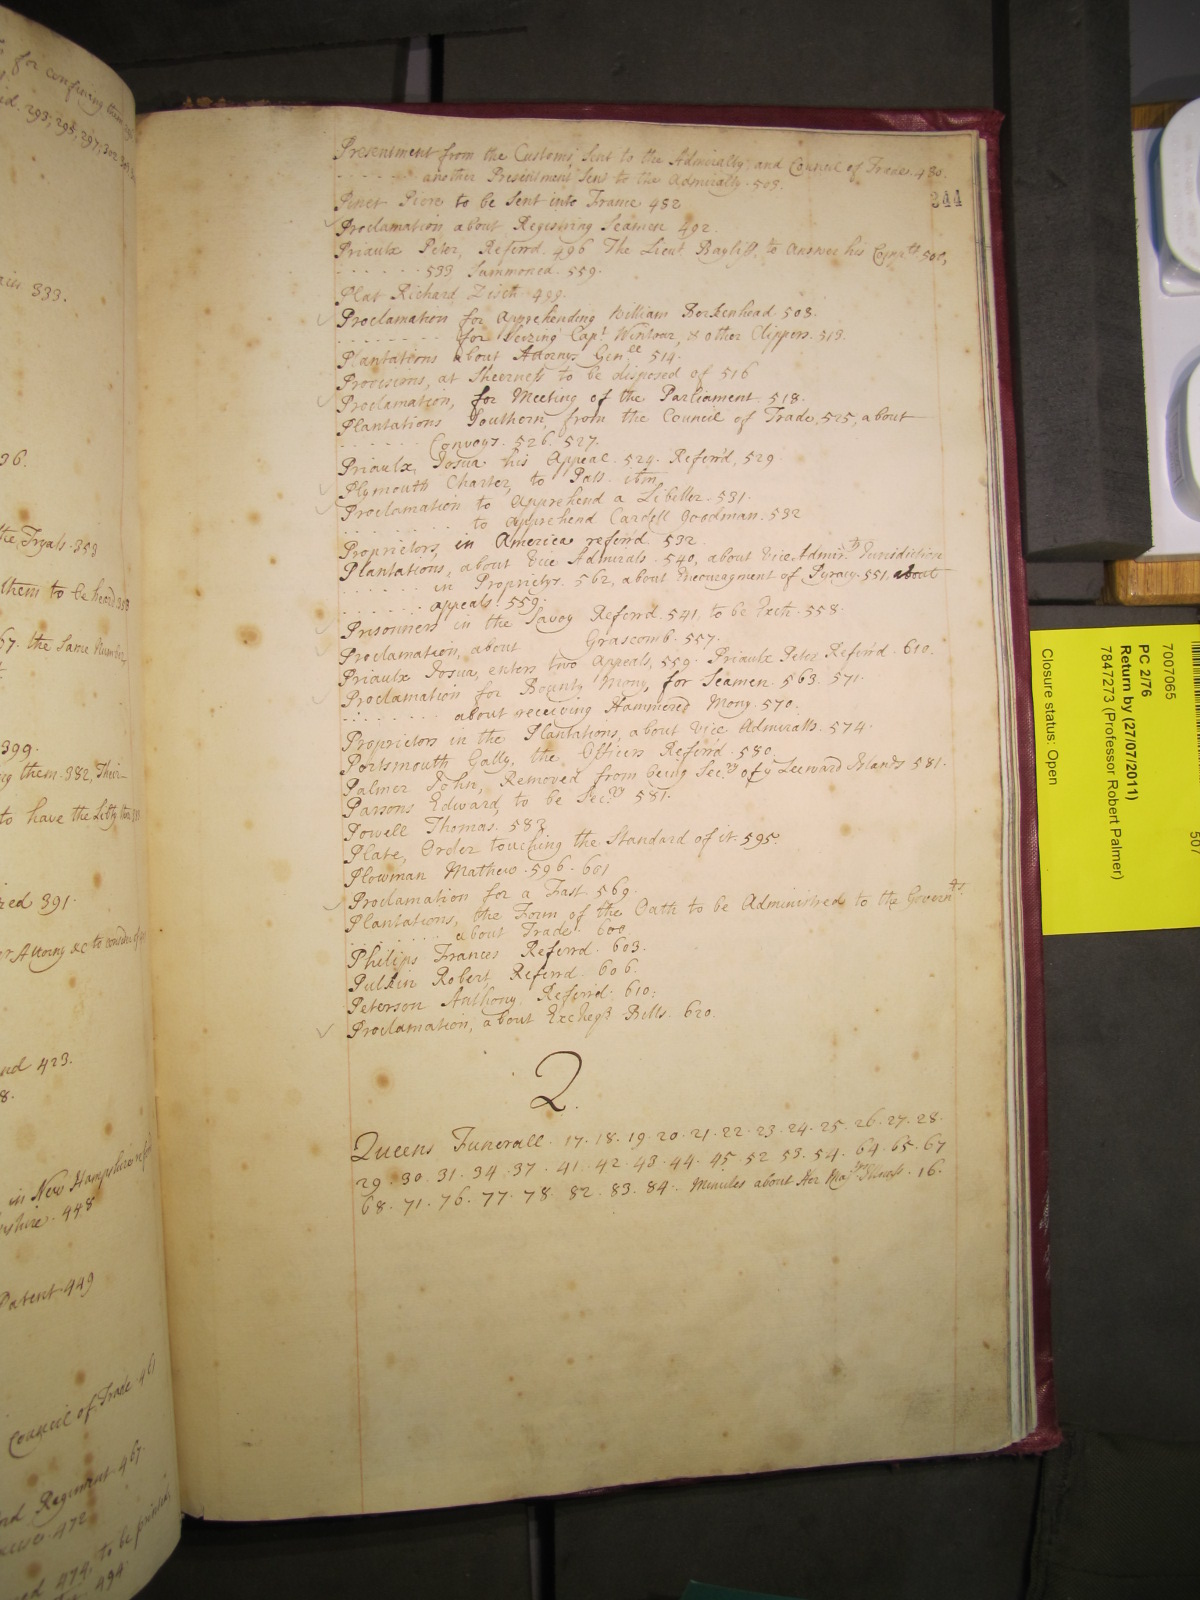 for confirming them
id. 293, 295, 297, 302
333.
36.
the Tryals. 353
them to be heard 358
67. the same Number
399.
ng them. 382, Their
to have the Liberty
zed 391.
or Attorny &c to consider of
nd 423.
8.
in New Hampshire
shire. 448
Patent. 449
Council of Trade 461
Regiment. 467.
472
ed 474, to be printed,
494
Presentment from the Customs, Sent to the Admiralty, and Council of Trade. 480.
. . . . . another Presentment Sent to the Admiralty. 503.
244
Piere to be Sent into France 482
Proclamation about Registring Seamen 492.
Priaulx Peter, Referrd. 496 The Lieut. Bayliff, to Answer his Compts 501,
. . . . . . 533 Summoned. 559.
Plat Richard 499.
Proclamation for Apprehending William Berkenhead 503.
. . . . . . . for Seizing Capt. Wintour, & other Clippers. 513.
Plantations about Attorneys Genll 514.
Provisions, at Sheerness to be disposed of 516
Proclamation, for Meeting of the Parliament. 518.
Plantations Southern, from the Council of Trade, 525, about
. . . . . . Convoys. 526. 527.
Priaulx, Josua his Appeal. 524. Referrd, 529.
Plymouth Charter, to Pass. ibm.
Proclamation to Apprehend a Libeller. 531.
. . . . . . . to Apprehend Cardell Goodman. 532
Proprietors, in America referrd. 532.
Plantations, about Vice Admirals. 540, about Vice Admirlts Jurisdiction
. . . . . . in Proprietys. 562, about Encouragment of Pyracy. 551, about
. . . . . . appeals. 559.
Prisonners in the Savoy Referrd. 541, to be Exch. 558.
Proclamation, about Grascomb. 557.
Priaulx Josua, enters two Appeals, 559. Priaulx Peter Referrd. 610.
Proclamation for Bounty Mony, for Seamen. 563. 571.
. . . . . . about receiving Hammered Mony. 570.
Proprietors in the Plantations, about Vice Admiralls. 574.
Portsmouth Gally, the Officers Referrd. 580.
Palmer John, Removed from being Secry of ye Leeward Islands 581.
Parsons Edward, to be Secry 581.
Powell Thomas. 583
Plate, Order touching the Standard of it. 595.
Plowman Mathew. 596. 601
Proclamation for a Fast 569.
Plantations, the Form of the Oath to be Administred to the Governrs.
. . . . . . about Trade. 600.
Philips Frances Referrd. 603.
Pulkin Robert, Referrd. 606.
Peterson Anthony, Referrd. 610.
Proclamation, about Excheqr Bills. 620.
Q.
Queens Funerall. 17. 18. 19. 20. 21. 22. 23. 24. 25. 26. 27. 28.
29. 30. 31. 34. 37. 41. 42. 43. 44. 45 52 53. 54. 64. 65. 67
68. 71. 76. 77. 78. 82. 83. 84. Minutes about Her Majtys Illness. 16.
7007065
507
PC 2/76
Return by (27/07/2011)
7847273 (Professor Robert Palmer)
Closure status: Open